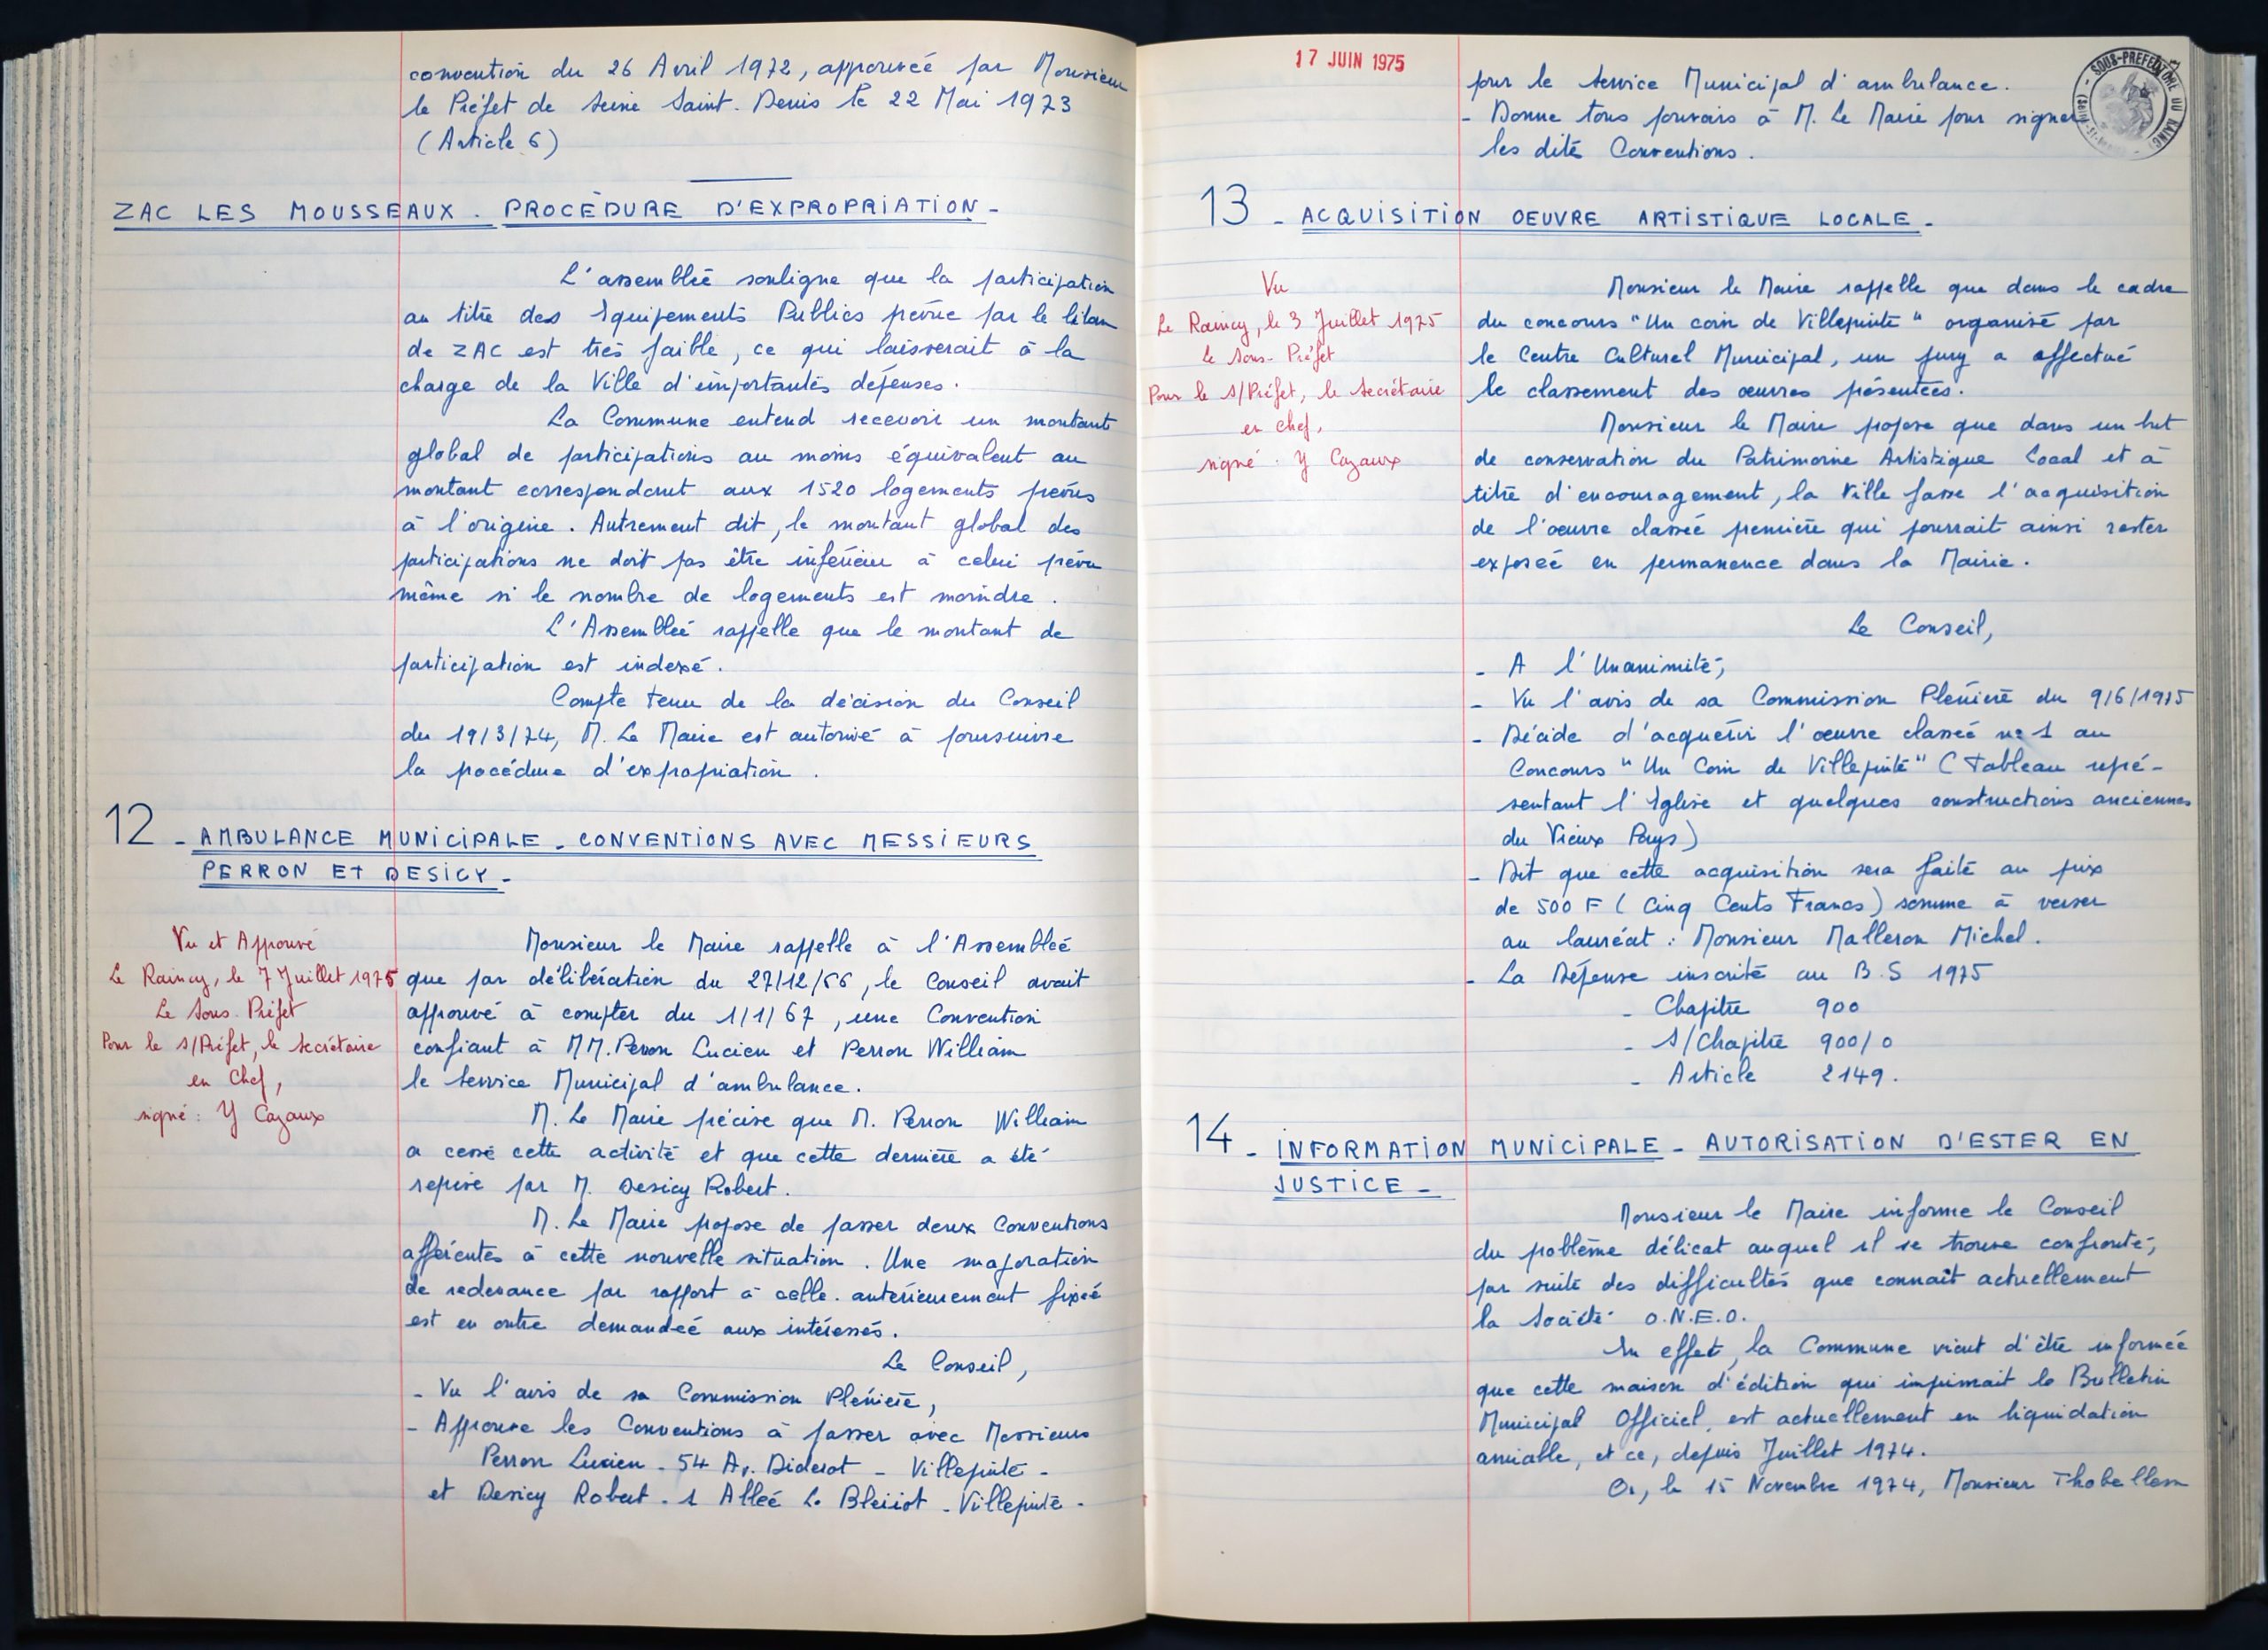 convention du 26 Avril 1972, approuvée par Monsieur
le Préfet de Seine Saint-Denis le 22 Mai 1973
(Article 6)
ZAC LES MOUSSEAUX - PROCÉDURE D'EXPROPRIATION -
L'assemblée souligne que la participation
au titre des Equipements Publics prévue par le bilan
de ZAC est très faible, ce qui laisserait à la
charge de la Ville d'importantes dépenses.
La Commune entend recevoir un montant
global de participations au moins équivalent au
montant correspondant aux 1520 logements prévus
à l'origine. Autrement dit, le montant global des
participations ne doit pas être inférieur à celui prévu
même si le nombre de logements est moindre.
L'Assemblée rappelle que le montant de
participation est indexé.
Compte tenu de la décision du Conseil
du 19/3/74, M. Le Maire est autorisé à poursuivre
la procédure d'expropriation.
12 - AMBULANCE MUNICIPALE - CONVENTIONS AVEC MESSIEURS
PERRON ET DESICY -
Vu et Approuvé
Le Raincy, le 7 Juillet 1975
Le Sous-Préfet
Pour le S/Préfet, le Secrétaire
en Chef,
signé : Y Cazaux
Monsieur le Maire rappelle à l'Assemblée
que par délibération du 27/12/66, le Conseil avait
approuvé à compter du 1/1/67, une Convention
confiant à MM. Perron Lucien et Perron William
le Service Municipal d'ambulance.
M. Le Maire précise que M. Perron William
a cessé cette activité et que cette dernière a été
reprise par M. Desicy Robert.
M. Le Maire propose de passer deux Conventions
afférentes à cette nouvelle situation. Une majoration
de redevance par rapport à celle antérieurement fixée
est en outre demandée aux intéressés.
Le Conseil,
- Vu l'avis de sa Commission Plénière,
- Approuve les Conventions à passer avec Messieurs
Perron Lucien - 54 Av. Diderot - Villepinte -
et Desicy Robert - 1 Allée L. Blériot - Villepinte -
17 JUIN 1975
SOUS-PREFECTURE DU RAINCY
pour le Service Municipal d'ambulance.
- Donne tous pouvoirs à M. Le Maire pour signer
les dites Conventions.
13 - ACQUISITION OEUVRE ARTISTIQUE LOCALE -
Vu
Le Raincy, le 3 Juillet 1975
le Sous-Préfet
Pour le S/Préfet, le Secrétaire
en chef,
signé : Y Cazaux
Monsieur le Maire rappelle que dans le cadre
du concours "Un coin de Villepinte" organisé par
le Centre Culturel Municipal, un jury a effectué
le classement des œuvres présentées.
Monsieur le Maire propose que dans un but
de conservation du Patrimoine Artistique Local et à
titre d'encouragement, la Ville fasse l'acquisition
de l'œuvre classée première qui pourrait ainsi rester
exposée en permanence dans la Mairie.
Le Conseil,
- A l'Unanimité,
- Vu l'avis de sa Commission Plénière du 9/6/1975
- Décide d'acquérir l'œuvre classée n° 1 au
Concours "Un Coin de Villepinte" (Tableau repré-
sentant l'Eglise et quelques constructions anciennes
du Vieux Pays)
- Dit que cette acquisition sera faite au prix
de 500 F (Cinq Cents Francs) somme à verser
au lauréat : Monsieur Malleron Michel.
- La Dépense inscrite au B.S 1975
- Chapitre 900
- S/Chapitre 900/0
- Article 2149.
14 - INFORMATION MUNICIPALE - AUTORISATION D'ESTER EN
JUSTICE -
Monsieur le Maire informe le Conseil
du problème délicat auquel il se trouve confronté,
par suite des difficultés que connait actuellement
la Société O.N.E.O.
En effet, la Commune vient d'être informée
que cette maison d'édition qui imprimait le Bulletin
Municipal Officiel, est actuellement en liquidation
amiable, et ce, depuis Juillet 1974.
Or, le 15 Novembre 1974, Monsieur Thobellem